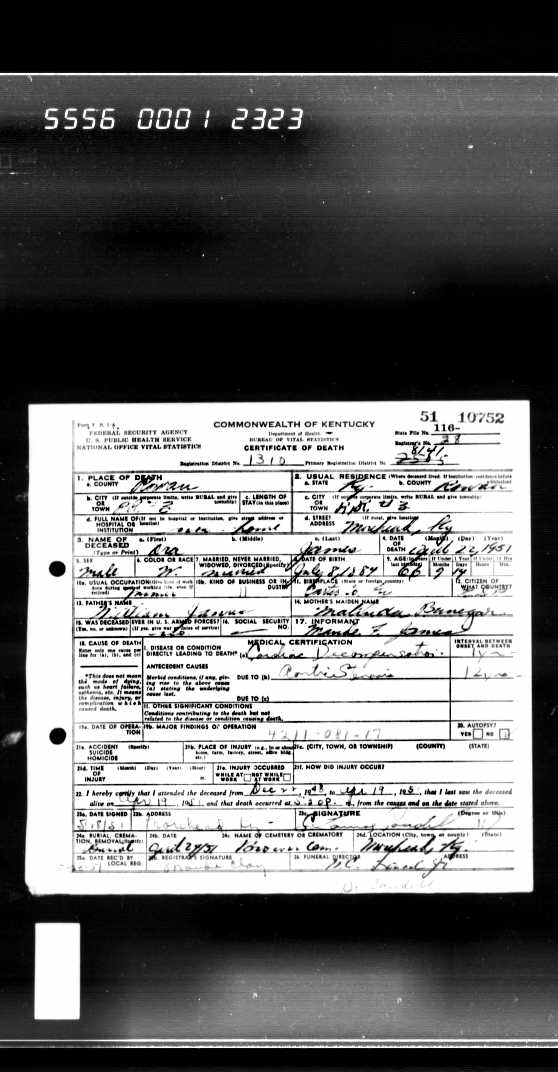 5556 0001 2323
51 10752
FEDERAL SECURITY AGENCY
U. S. PUBLIC HEALTH SERVICE
NATIONAL OFFICE VITAL STATISTICS
COMMONWEALTH OF KENTUCKY
Department of Health
BUREAU OF VITAL STATISTICS
CERTIFICATE OF DEATH
State File No. 116-
Registrar's No. 28
Registration District No. 1310 Primary Registration District No. 8141
1. PLACE OF DEATH
a. COUNTY Rowan
2. USUAL RESIDENCE (Where deceased lived. If institution: residence before
a. STATE Ky. b. COUNTY Rowan
b. CITY (If outside corporate limits, write RURAL and give township) OR TOWN
c. LENGTH OF STAY (in this place)
c. CITY (If outside corporate limits, write RURAL and give township) OR TOWN
d. FULL NAME OF (If not in hospital or institution, give street address or HOSPITAL OR INSTITUTION
d. STREET ADDRESS (If rural, give location) Morehead, Ky
3. NAME OF DECEASED (Type or Print) a. (First) Ora b. (Middle) c. (Last) James
4. DATE OF DEATH (Month) (Day) (Year) April 22, 1951
5. SEX Male
6. COLOR OR RACE W.
7. MARRIED, NEVER MARRIED, WIDOWED, DIVORCED (Specify) married
8. DATE OF BIRTH July 8, 1884
9. AGE 66 9 14
10a. USUAL OCCUPATION Farmer
10b. KIND OF BUSINESS OR INDUSTRY
11. BIRTHPLACE (State or foreign country) Carter Co.
12. CITIZEN OF WHAT COUNTRY?
13. FATHER'S NAME William James
14. MOTHER'S MAIDEN NAME Malinda
15. WAS DECEASED EVER IN U. S. ARMED FORCES?
(Yes, no, or unknown) (If yes, give war or dates of service)
16. SOCIAL SECURITY NO.
17. INFORMANT Maude F. James
18. CAUSE OF DEATH
Enter only one cause per line for (a), (b), and (c)
MEDICAL CERTIFICATION
INTERVAL BETWEEN ONSET AND DEATH
I. DISEASE OR CONDITION DIRECTLY LEADING TO DEATH* (a) Cardiac Decompensation
*This does not mean the mode of dying, such as heart failure, asthenia, etc. It means the disease, injury, or complication which caused death.
ANTECEDENT CAUSES
Morbid conditions, if any, giving rise to the above cause (a) stating the underlying cause last.
DUE TO (b)
DUE TO (c)
II. OTHER SIGNIFICANT CONDITIONS
Conditions contributing to the death but not related to the disease or condition causing death.
19a. DATE OF OPERATION
19b. MAJOR FINDINGS OF OPERATION
4211-081-17
20. AUTOPSY? YES NO
21a. ACCIDENT SUICIDE HOMICIDE (Specify)
21b. PLACE OF INJURY (e.g., in or about home, farm, factory, street, office bldg., etc.)
21c. (CITY, TOWN, OR TOWNSHIP) (COUNTY) (STATE)
21d. TIME OF INJURY (Month) (Day) (Year) (Hour) m.
21e. INJURY OCCURRED WHILE AT WORK NOT WHILE AT WORK
21f. HOW DID INJURY OCCUR?
22. I hereby certify that I attended the deceased from Dec 22, 1948 to Apr 19, 1951, that I last saw the deceased
alive on Apr 19, 1951, and that death occurred at 5:20 P. m., from the causes and on the date stated above.
23a. DATE SIGNED
23b. ADDRESS Morehead
23c. SIGNATURE (Degree or title)
24a. BURIAL, CREMATION, REMOVAL (Specify) Burial
24b. DATE April 24/51
24c. NAME OF CEMETERY OR CREMATORY
24d. LOCATION (City, town, or county) (State) Morehead, Ky.
25a. DATE REC'D BY LOCAL REG.
25b. REGISTRAR'S SIGNATURE Clay
26. FUNERAL DIRECTOR ADDRESS